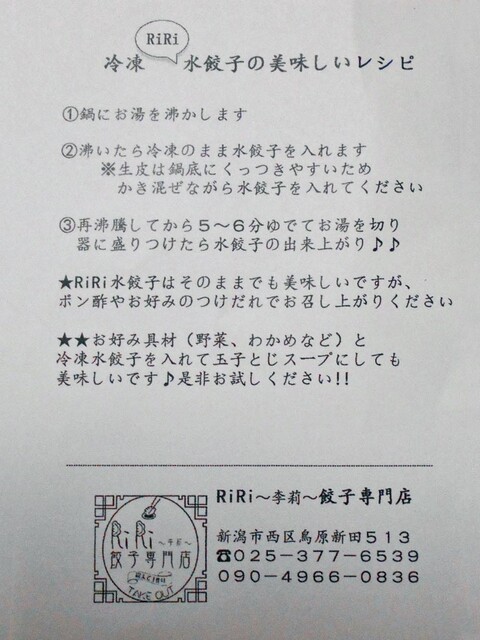 RiRi
冷凍 水餃子の美味しいレシピ
①鍋にお湯を沸かします
②沸いたら冷凍のまま水餃子を入れます
※生皮は鍋底にくっつきやすいため
かき混ぜながら水餃子を入れてください
③再沸騰してから５～６分ゆでてお湯を切り
器に盛りつけたら水餃子の出来上がり♪♪
★RiRi水餃子はそのままでも美味しいですが、
ポン酢やお好みのつけだれでお召し上がりください
★★お好み具材（野菜、わかめなど）と
冷凍水餃子を入れて玉子とじスープにしても
美味しいです♪是非お試しください!!
RiRi～李莉～餃子専門店
新潟市西区鳥原新田５１３
☎０２５－３７７－６５３９
０９０－４９６６－０８３６
RiRi
餃子専門店
TAKE OUT